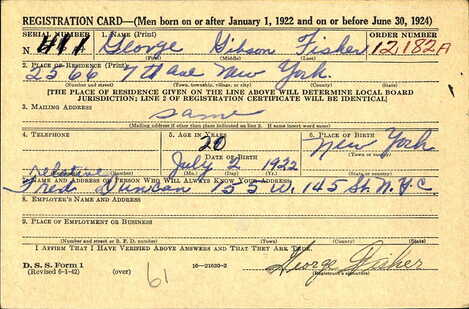 REGISTRATION CARD—(Men born on or after January 1, 1922 and on or before June 30, 1924)
SERIAL NUMBER 1. NAME (Print) ORDER NUMBER
N. 411 George Gibson Fisher 12,182A
(First) (Middle) (Last)
2. PLACE OF RESIDENCE (Print)
2566 7th Ave New York.
(Number and street) (Town, township, village, or city) (County) (State)
[THE PLACE OF RESIDENCE GIVEN ON THE LINE ABOVE WILL DETERMINE LOCAL BOARD
JURISDICTION; LINE 2 OF REGISTRATION CERTIFICATE WILL BE IDENTICAL]
3. MAILING ADDRESS
same
[Mailing address if other than place indicated on line 2. If same insert word same]
4. TELEPHONE 5. AGE IN YEARS 6. PLACE OF BIRTH
20 New York
DATE OF BIRTH (Town or county)
July 2 1922
(Exchange) (Number) (Mo.) (Day) (Yr.) (State or country)
relative
7. NAME AND ADDRESS OF PERSON WHO WILL ALWAYS KNOW YOUR ADDRESS
Fred Duncan 155 W. 145 St. N.Y.C
8. EMPLOYER'S NAME AND ADDRESS
9. PLACE OF EMPLOYMENT OR BUSINESS
(Number and street or R. F. D. number) (Town) (County) (State)
I AFFIRM THAT I HAVE VERIFIED ABOVE ANSWERS AND THAT THEY ARE TRUE.
D. S. S. Form 1
(Revised 6-1-42) (over) 16-21630-2 George Fisher
61 (Registrant's signature)